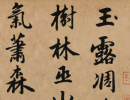 玉露凋
樹林巫山
氣蕭森